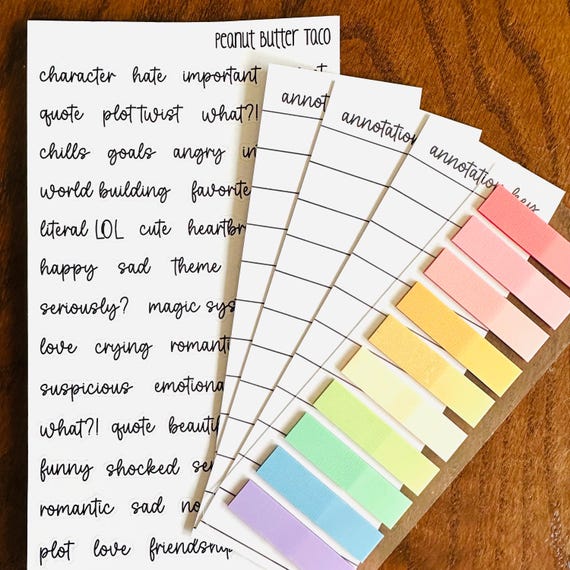 Peanut Butter Taco
character hate important
quote plot twist what?!
chills goals angry
world building favorite
literal LOL cute
happy sad theme
seriously? magic
love crying
suspicious
what?! quote
funny shocked
romantic sad
plot love friendship
annotation
annotation
annotation key